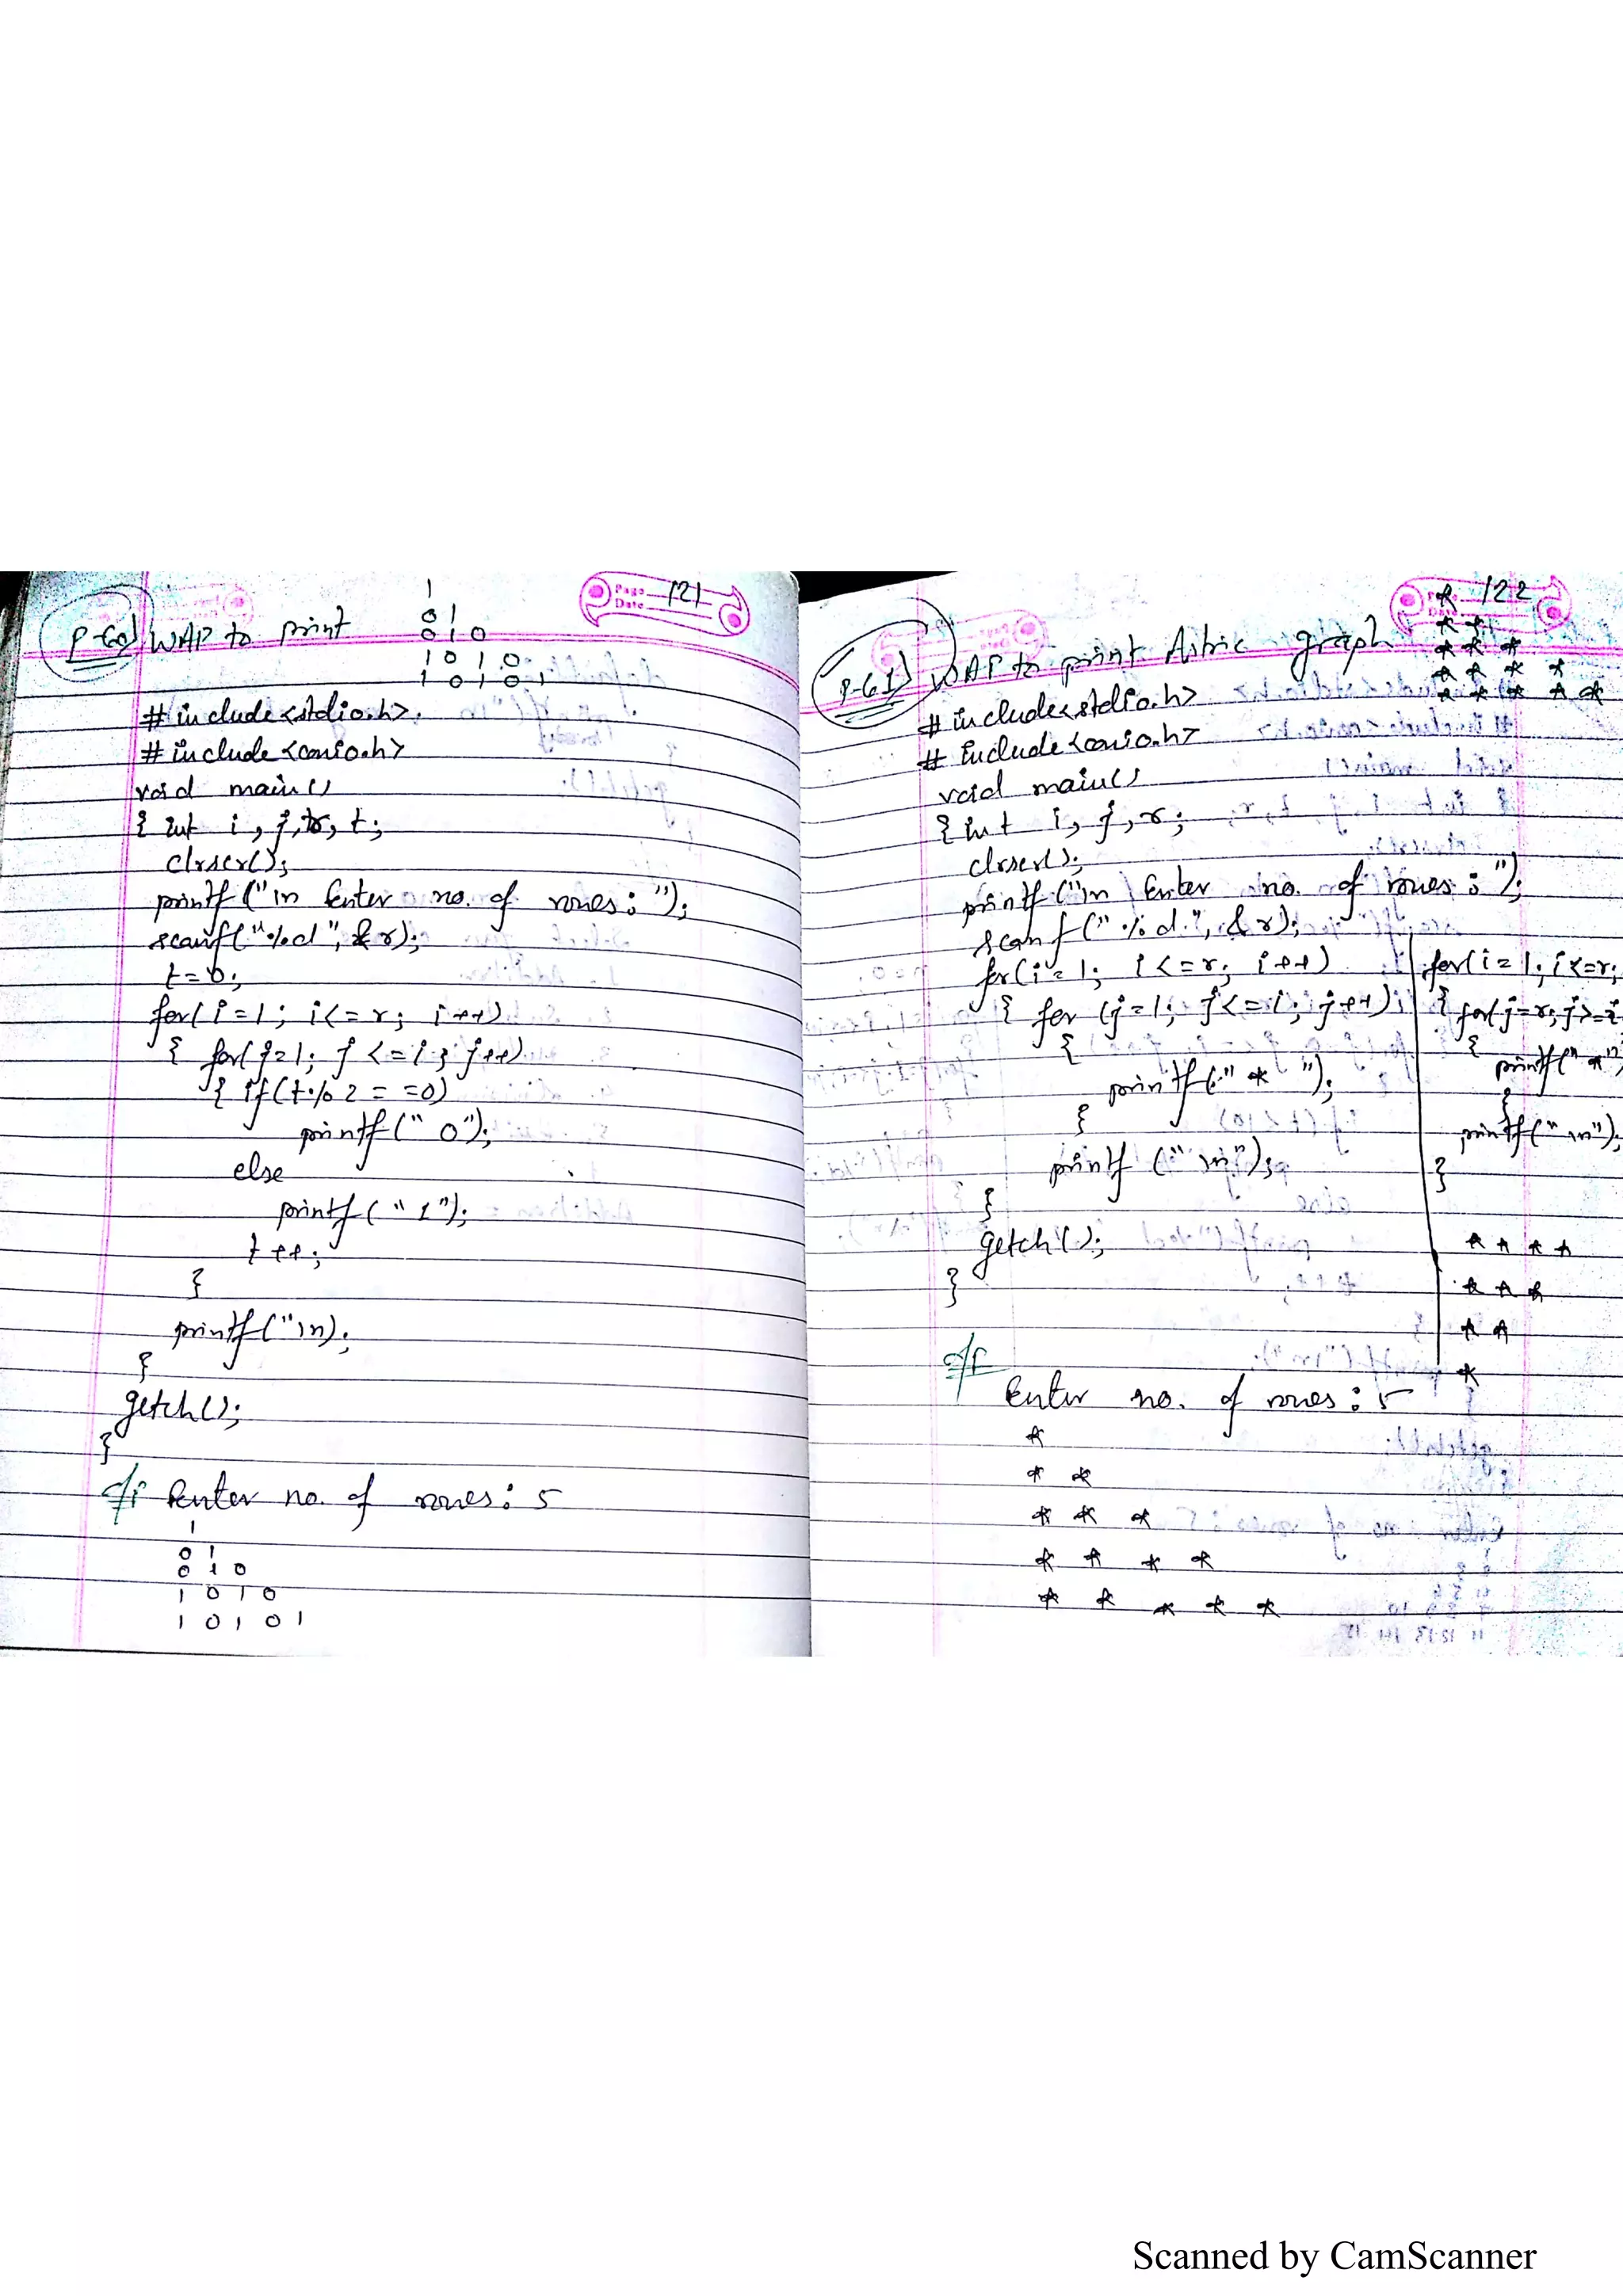 Page 121
Date
P-60) WAP to print
1
0 1
0 1 0
1 0 1 0
1 0 1 0 1
#include<stdio.h>
#include<conio.h>
void main()
{ int i, j, r, t;
clrscr();
printf("\n Enter no. of rows: ");
scanf("%d", &r);
t=0;
for(i=1; i<=r; i++)
{ for(j=1; j<=i; j++)
{ if(t%2==0)
printf(" 0");
else
printf(" 1");
t++;
}
printf("\n);
}
getch();
}
O/P Enter no. of rows: 5
1
0 1
0 1 0
1 0 1 0
1 0 1 0 1
122
P-61) WAP to print Astric graph
*
* *
* * *
* * * *
* * * * *
#include<stdio.h>
#include<conio.h>
void main()
{ int i, j, r;
clrscr();
printf("\n Enter no. of rows: ");
scanf("%d", &r);
for(i=1; i<=r; i++)
{ for (j=1; j<=i; j++)
{
printf(" * ");
}
printf(" \n");
}
getch();
}
for(i=1; i<=r;
{ for(j=r; j>=i
{
printf(" *")
}
printf(" \n");
}
* * * *
* * *
* *
*
O/P
Enter no. of rows: 5
*
* *
* * *
* * * *
* * * * *
Scanned by CamScanner